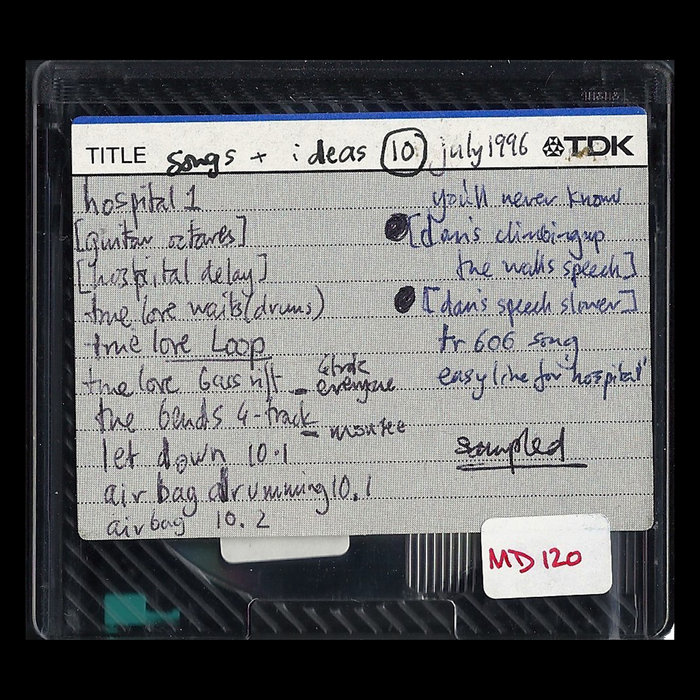 TITLE songs + ideas 10 july 1996 TDK
hospital 1
[guitar octaves]
[hospital delay]
true love waits (drums)
true love Loop
true love bass riff - everyone
the bends 4-track
let down 10.1
airbag drumming 10.1
airbag 10.2
you'll never know
[dan's climbing up
the walls speech]
[dan's speech slower]
tr 606 song
easy line for 'hospital'
sampled
MD 120